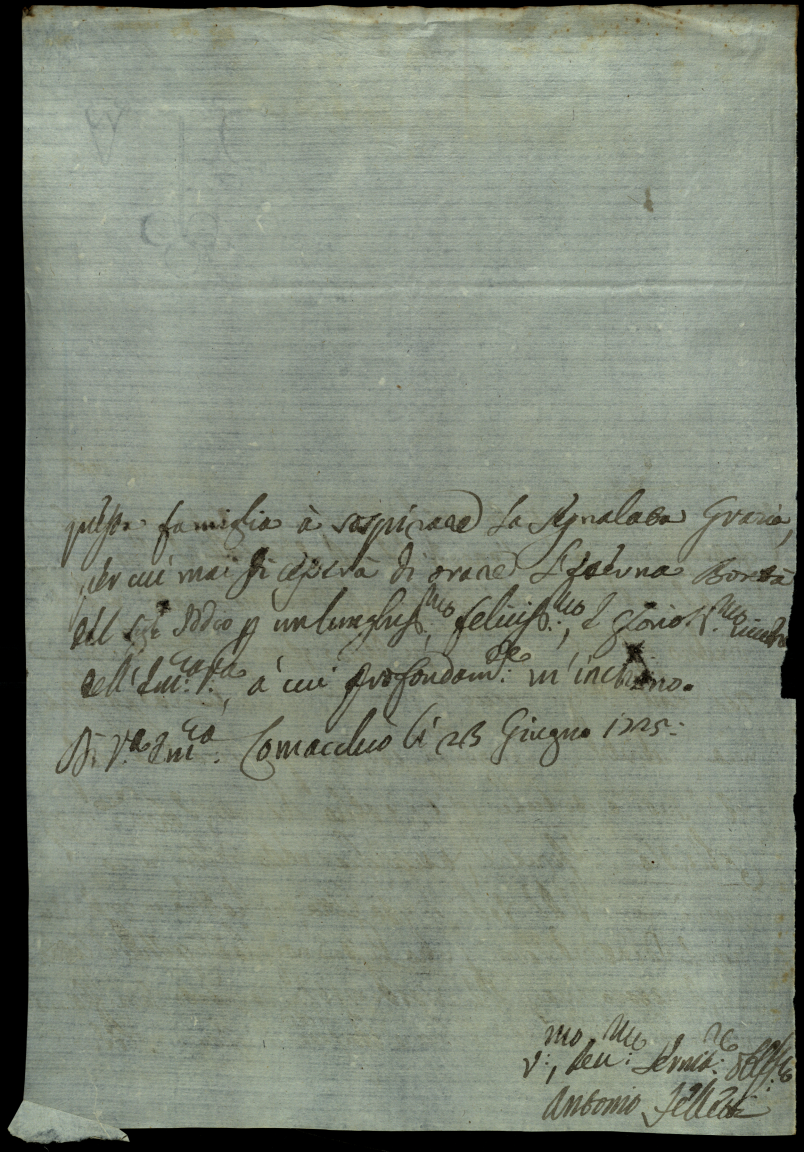 questa famiglia à sospirare la segnalata Grazia,
per cui mai si cesserà di orare l'eterna Bontà
del Sig.re Iddio p un lunghiss.mo, feliciss.mo, e glorios.mo
dell'Em.za V.ra, à cui profondam.te m'inchino.
Di V.ra Em.za Comacchio li 23 Giugno 1725:
V.mo, Dev.mo Servit.re Obblig.mo
Antonio Felletti